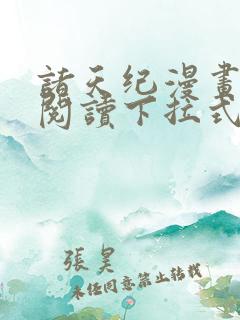 諸天纪漫畫
閱讀下拉式
張昊
未經同意禁止轉載